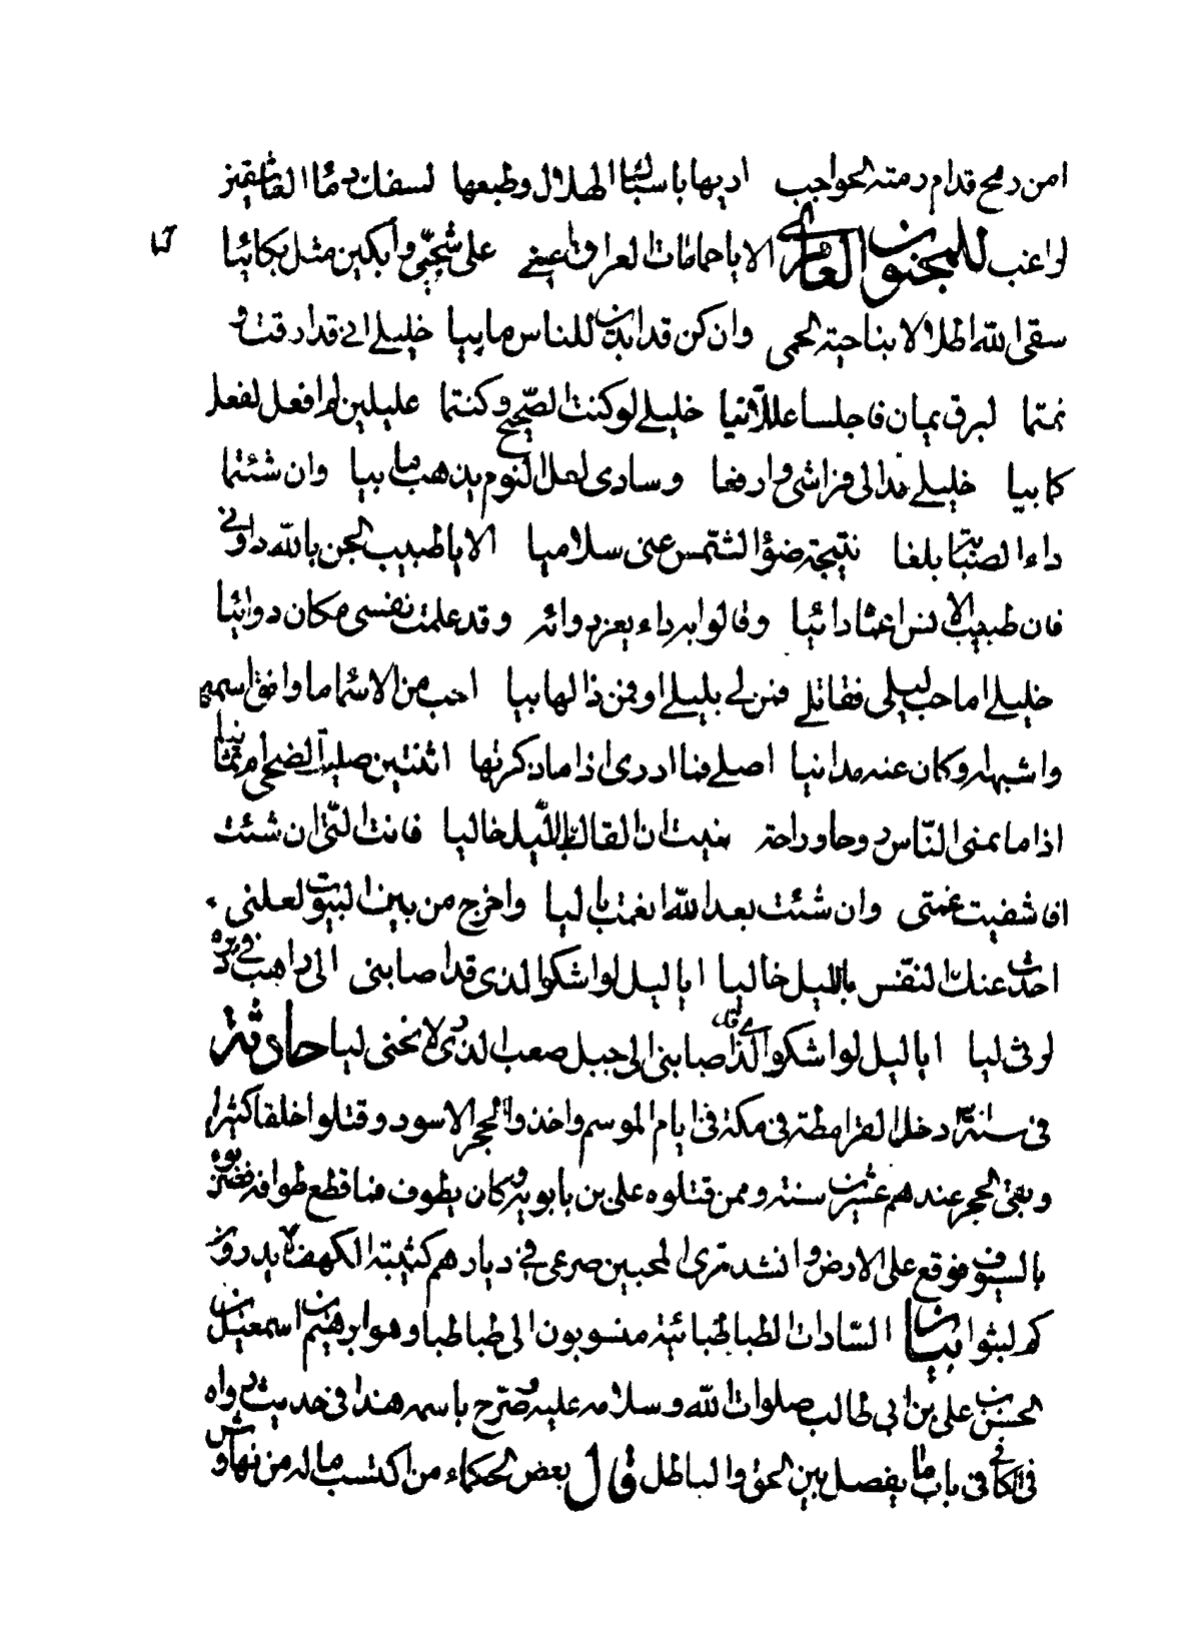 امن رمح قدام رمته الحواجب اربها باسباا الهلال وطبعها لسفك دماا العاشقين
لواعب للمجنون العامري الا ياحمامات العراق اعينني على شجني وابكين مثل بكائيا
سقى الله اطلالا بناحية الحمى وان كن قد ابدين للناس مابيا خليلي اني قد ارقت و
نمتما لبرق يمان فاجلسا عللانيا خليلي لو كنت الصحيح وكنتما عليلين لم افعل لفعل
كما بيا خليلي مدا لي فراشي وارفعا وسادى لعل النوم يذهب مابيا وان شئتما
داء الصبابة بلغا نتيجة ضوٴ الشمس عنى سلاميا الا ياطبيب الجن بالله داونى
فان طبيب الانس اعيا دائيا وقالوا به داء يعز دوائه وقد علمت نفسى مكان دوائيا
خليلي اما حب ليلى فقاتلي فمن لي بليلى او فمن ذا لها بيا احب من الاسماء ما وافق اسمها
واشبهه وكان عنه مدانيا اصلي فما ادرى اذا ما ذكرتها اثنتين صليت الضحى ام ثمانيا
اذا ما تمنى الناس روحا وراحة تمنيت ان القاك يا ليل خاليا فانت التى ان شئت
اشفيت غمتى وان شئت بعد الله انعمت باليا واخرج من بين البيوت لعلنى
احدث عنك النفس بالليل خاليا ايا ليل لو اشكو الذى قد اصابنى الى راهب في ديره
لرثى ليا ايا ليل لو اشكو الذى اصابنى الى جبل صعب الذرى لانحنى ليا حادثة
فى سنة دخل القرامطة فى مكة فى ايام الموسم واخذوا الحجر الاسود وقتلوا خلقا كثيرا
وبقى الحجر عندهم عشرين سنة وممن قتلوه على بن بابويه وكان يطوف فما قطع طوافه فضربوه
بالسيوف فوقع على الارض وانشد ترى المحبين صرعى في ديارهم كفتية الكهف لا يدرون
كم لبثوا بيان السادات الطباطبائية منسوبون الى طباطبا وهو ابرهيم بن اسمعيل بن
الحسن بن على بن ابى طالب صلوات الله وسلامه عليه وصرح باسمه هذا فى حديث رواه
فى الكافى فى باب ما يفصل بين الحق والباطل قال بعض الحكماء من اكتسب ماله من نهاوش